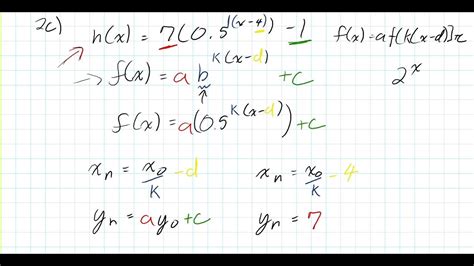 2c) h(x) = 7(0.5^(1(x-4))) - 1 f(x)=af[k(x-d)]+c
→ f(x) = a b^(k(x-d)) + c 2^x
f(x) = a(0.5^(k(x-d))) + c
x_n = x_0/k - d x_n = x_0/k - 4
y_n = a y_0 + c y_n = 7